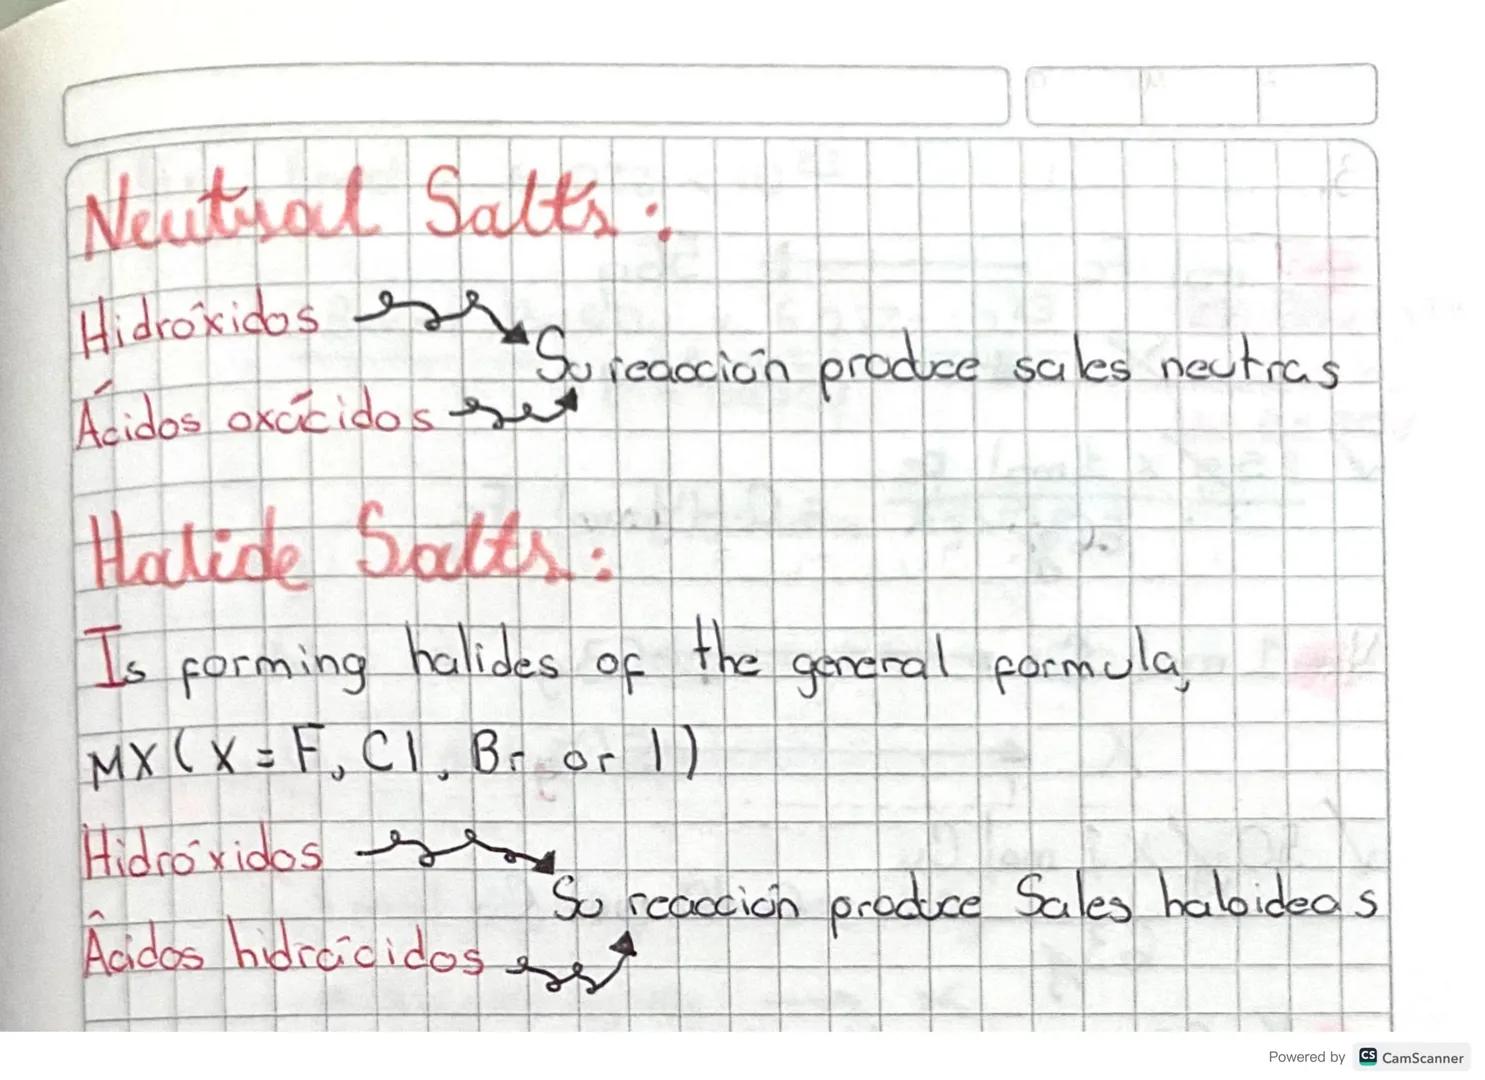 Neutral Salts:
Hidróxidos
Su reacción produce sales neutras
Ácidos oxácidos
Halide Salts:
Is forming halides of the general formula,
MX (X = F, Cl, Br or I)
Hidróxidos
Su reacción produce Sales haloideas
Ácidos hidrácidos
Powered by CS CamScanner